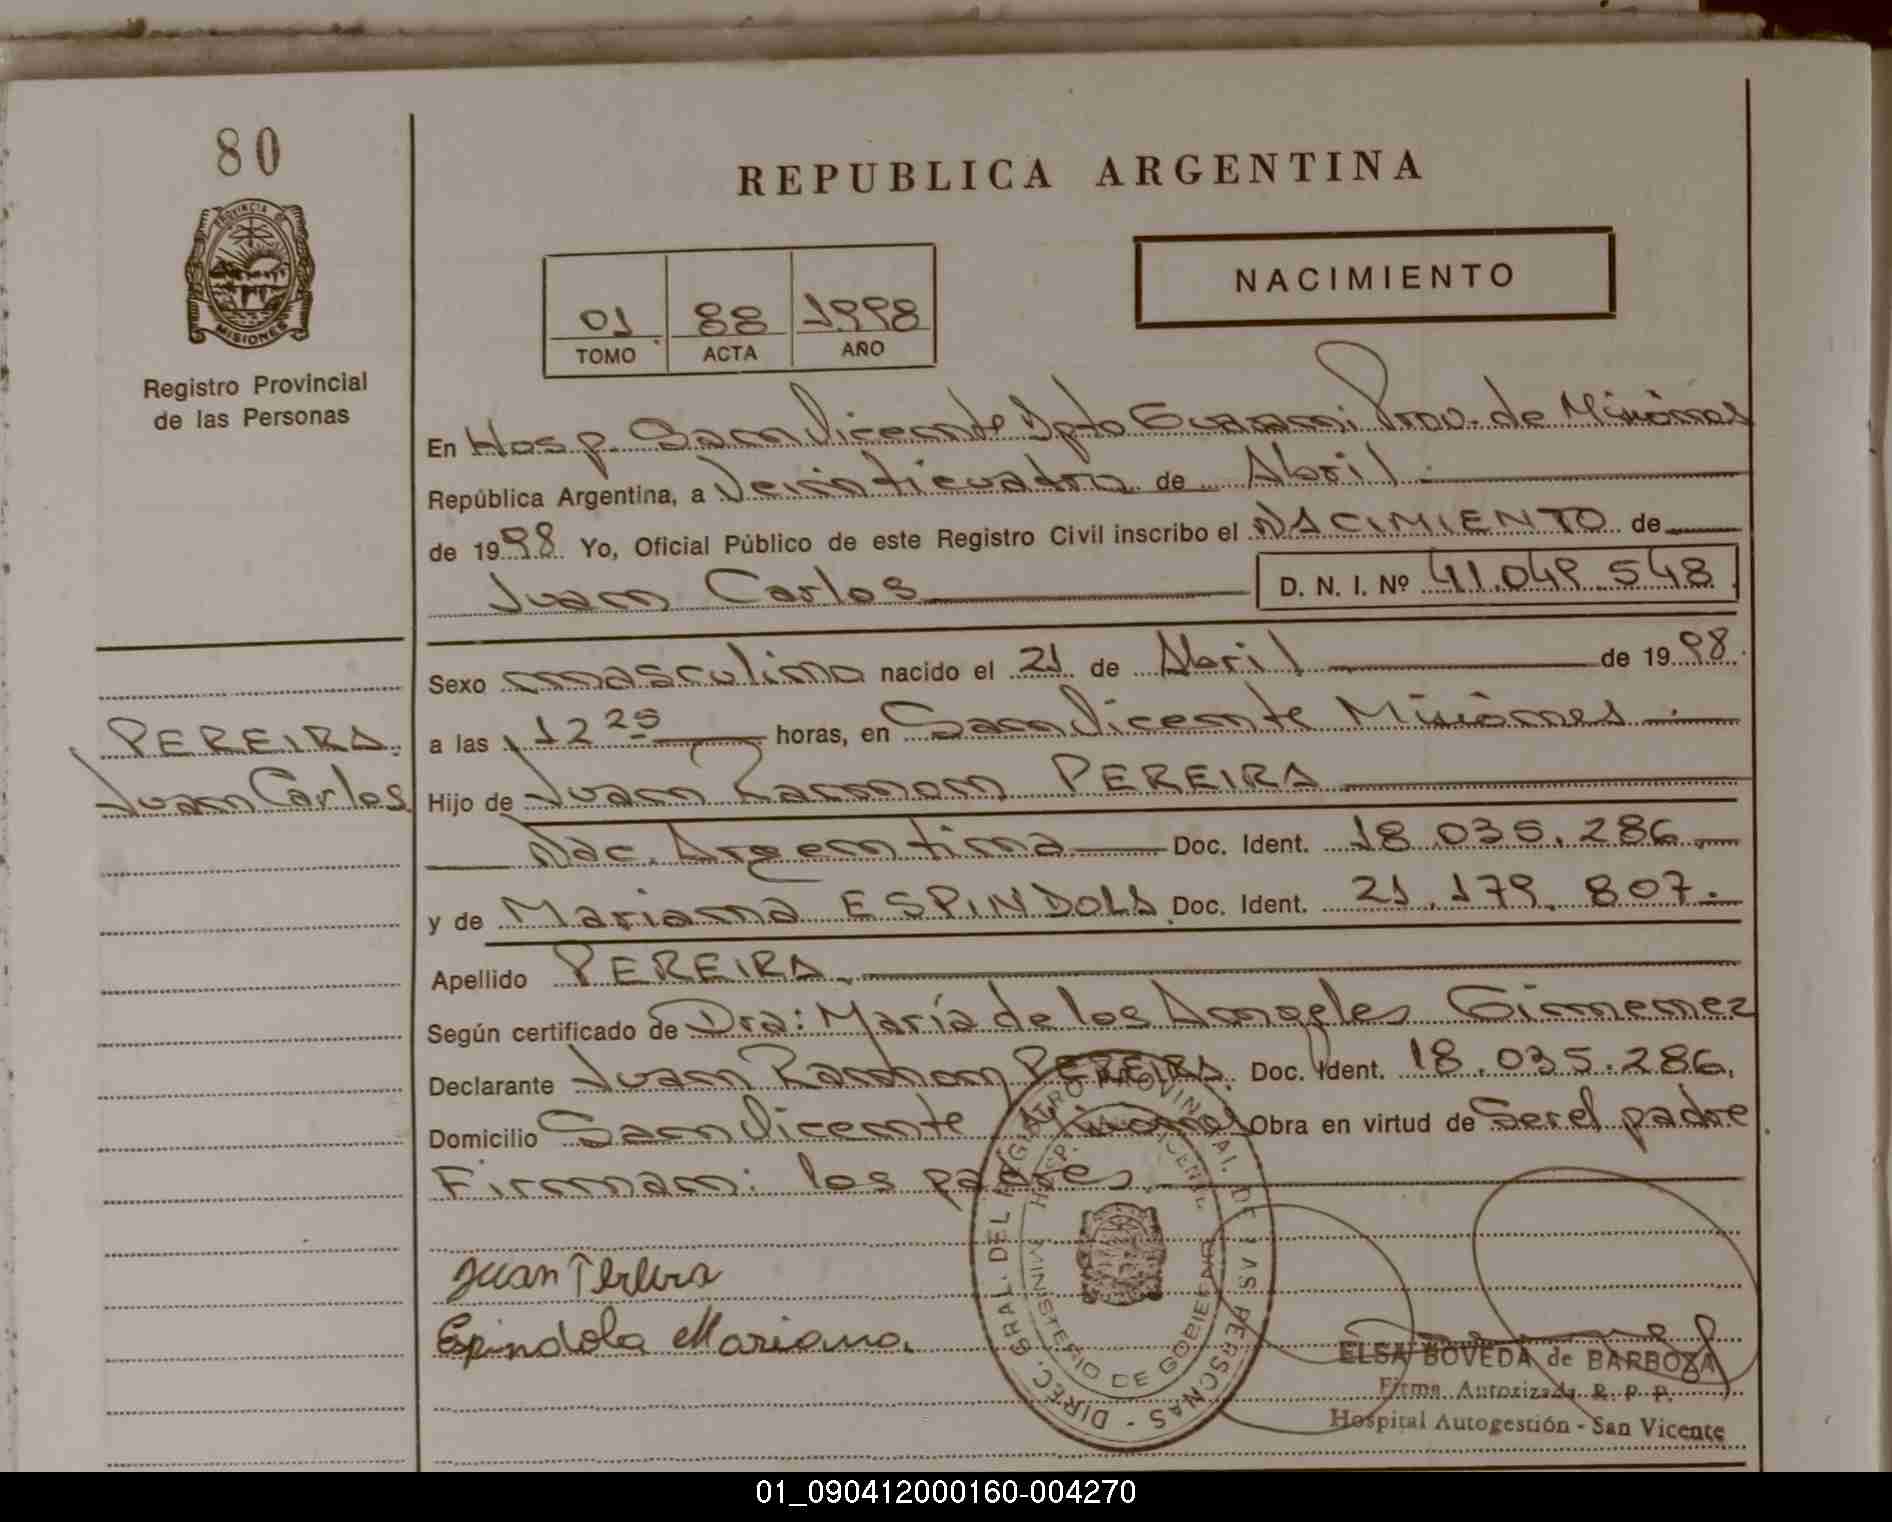 80
PROVINCIA DE
MISIONES
Registro Provincial
de las Personas
REPUBLICA ARGENTINA
NACIMIENTO
01 88 1998
TOMO ACTA AÑO
En Hosp. San Vicente Dpto Guarani Prov. de Misiones
República Argentina, a Veinticuatro de Abril
de 1998 Yo, Oficial Público de este Registro Civil inscribo el NACIMIENTO de
Juan Carlos D. N. I. Nº 41.049.548
Sexo masculino nacido el 21 de Abril de 1998.
PEREIRA.
Juan Carlos
a las 12 25 horas, en San Vicente Misiones
Hijo de Juan Ramon PEREIRA
Nac. Argentina Doc. Ident. 18.035.286
y de Mariana ESPINDOLA Doc. Ident. 21.179.807.
Apellido PEREIRA
Según certificado de Dra: María de los Angeles Gimenez
Declarante Juan Ramon PEREIRA. Doc. Ident. 18.035.286.
Domicilio San Vicente Misiones Obra en virtud de Ser el padre
Firman: los padres
Juan Pereira
Espindola Mariana.
DIREC. GRAL. DEL REGISTRO PROVINCIAL DE LAS PERSONAS
HOSP. VICENTE
MINISTERIO DE GOBIERNO
ELSA BOVEDA de BARBOZA
Firma Autorizada R. P. P.
Hospital Autogestión - San Vicente
01_090412000160-004270